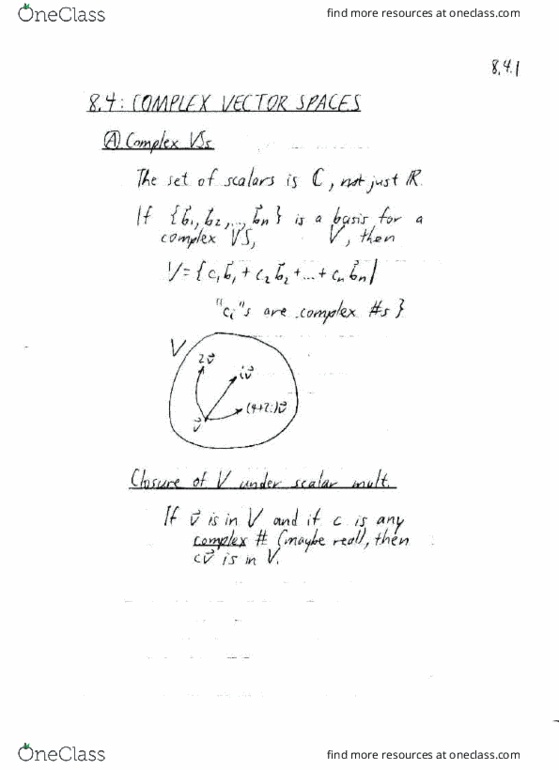 OneClass
find more resources at oneclass.com
8.4.1
8.4: COMPLEX VECTOR SPACES
Ⓐ Complex VSs
The set of scalars is C, not just R.
If {b⃗₁, b⃗₂, ..., b⃗ₙ} is a basis for a
complex VS, V, then
V = {c₁b⃗₁ + c₂b⃗₂ + ... + cₙb⃗ₙ |
"cᵢ"s are complex #s}
V
2v⃗
iv⃗
(4+2i)v⃗
v⃗
Closure of V under scalar mult.
If v⃗ is in V and if c is any
complex # (maybe real), then
cv⃗ is in V.
OneClass
find more resources at oneclass.com